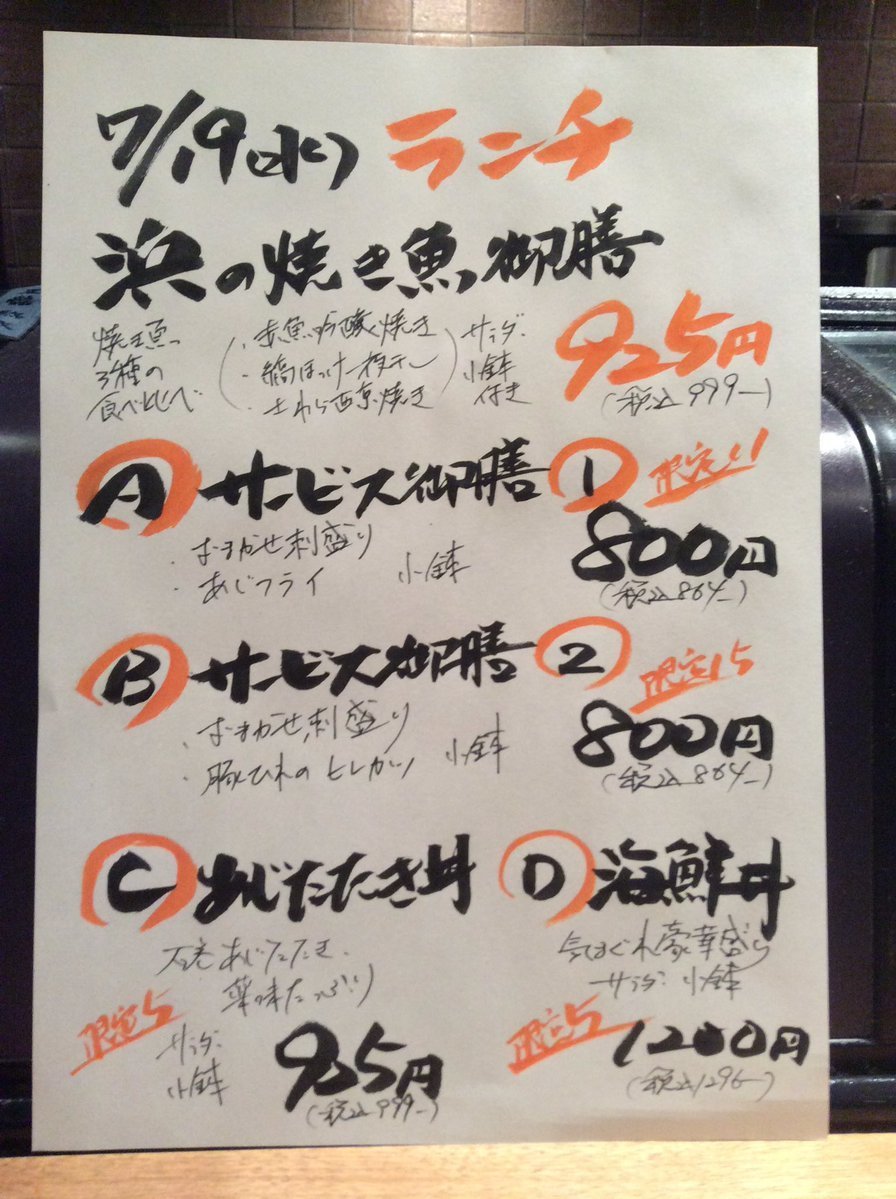 7/19(水) ランチ
浜の焼き魚御膳
焼き魚
3種の
食べ比べ
・赤魚吟醸焼き
・縞ほっけ一夜干し
・さわら西京焼き
サラダ
小鉢
付き
925円
(税込999-)
A サービス御膳 1
限定11
・おまかせ刺盛り
・あじフライ 小鉢
800円
(税込864-)
B サービス御膳 2
限定15
・おまかせ刺盛り
・豚ひれのヒレカツ 小鉢
800円
(税込864-)
C あじたたき丼
あじたたき
薬味たっぷり
限定5
サラダ
小鉢
925円
(税込999-)
D 海鮮丼
気まぐれ豪華盛り
サラダ 小鉢
限定5
1200円
(税込1296-)